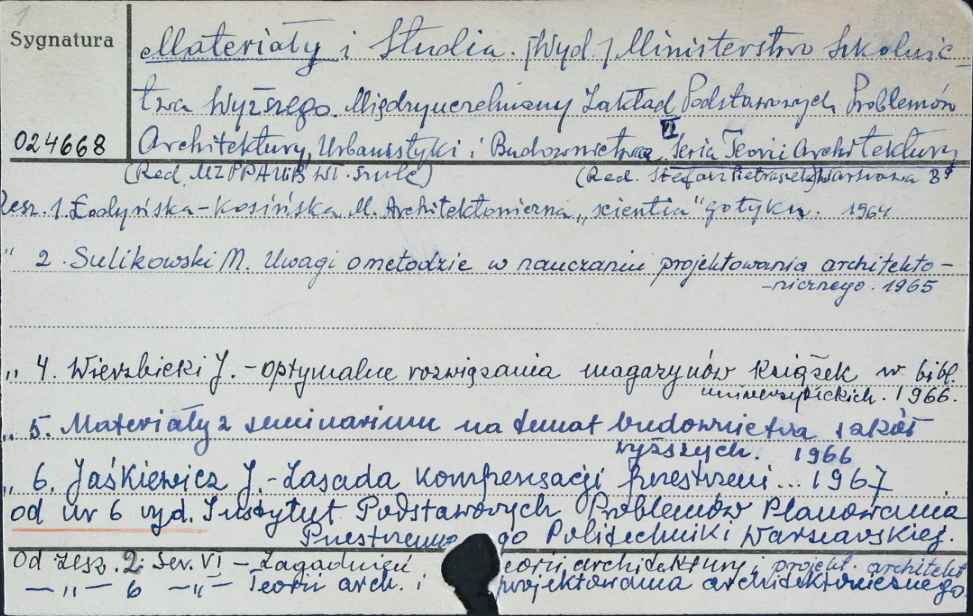 1
Sygnatura
Materiały i Studia. [Wyd.] Ministerstwo Szkolnic-
twa Wyższego. Międzyuczelniany Zakład Podstawowych Problemów
024668
Architektury, Urbanistyki i Budownictwa. Seria VI Teorii Architektury
(Red. Stefan Warszawa 8°
Zesz. 1. Łodyńska-Kosińska M. Architektoniczna "scientia" gotyku. 1964
" 2. Sulikowski M. Uwagi o metodzie w nauczaniu projektowania architekto-
-nicznego. 1965
" 4. Wierzbicki J. - Optymalne rozwiązania magazynów książek w bibl.
uniwersyteckich. 1966.
" 5. Materiały z seminarium na temat budownictwa szkół
wyższych. 1966
" 6. Jaśkiewicz J. - Zasada kompensacji przestrzeni... 1967
od nr 6 wyd. Instytut Podstawowych Problemów Planowania
Przestrzennego Politechniki Warszawskiej.
Od zesz. 2. Ser. VI - Zagadnień teorii architektury i projekt. architekt
— " — 6 — " Teorii arch. i projektowania architektonicznego